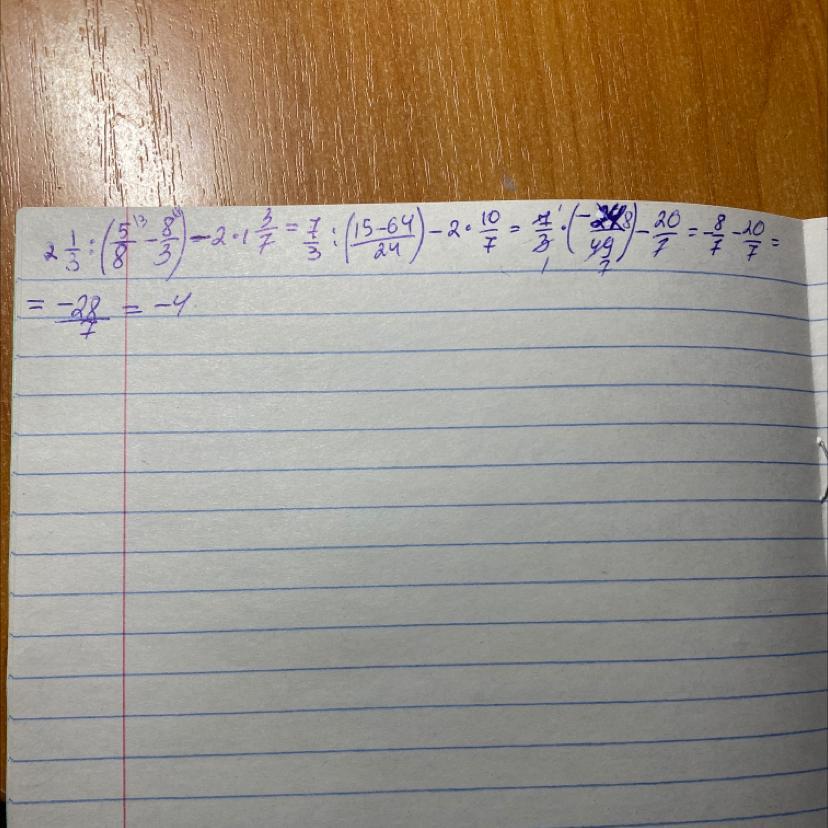 2 1/3 : (5/8 - 8/3) - 2 · 1 3/7 = 7/3 : ((15-64)/24) - 2 · 10/7 = 7/3 · (-24/49) - 20/7 = -8/7 - 20/7 =
= -28/7 = -4